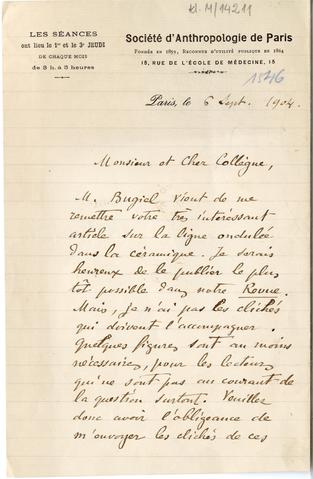 kl. M/14211
LES SÉANCES
ont lieu le 1er et le 3e JEUDI
DE CHAQUE MOIS
de 3 h. à 5 heures
Société d'Anthropologie de Paris
FONDÉE EN 1859, RECONNUE D'UTILITÉ PUBLIQUE EN 1864
15, RUE DE L'ÉCOLE DE MÉDECINE, 15
1546
Paris, le 6 Sept. 1904
Monsieur et Cher Collègue,
M. Bugiel vient de me
remettre votre très intéressant
article sur la ligne ondulée
dans la céramique. Je serais
heureux de le publier le plus
tôt possible dans notre Revue.
Mais, je n'ai pas les clichés
qui doivent l'accompagner.
Quelques figures sont au moins
nécessaires, pour les lecteurs
qui ne sont pas au courant de
la question surtout. Veuillez
donc avoir l'obligeance de
m'envoyer les clichés de ces